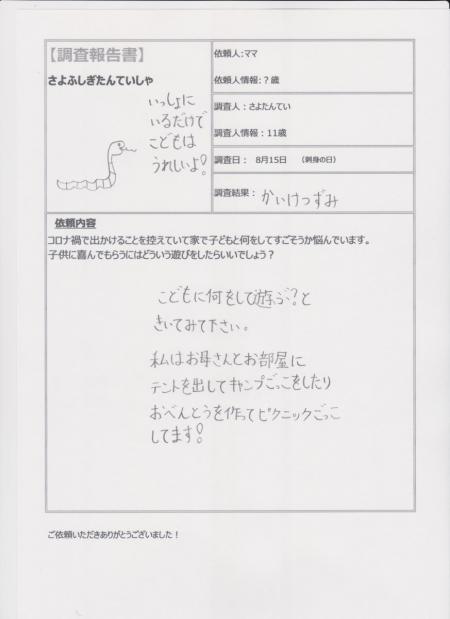 【調査報告書】
さよふしぎたんていしゃ
いっしょに
いるだけで
こどもは
うれしいよ！
依頼人：ママ
依頼人情報：？歳
調査人：さよたんてい
調査人情報：11歳
調査日： 8月15日 （刺身の日）
調査結果： かいけつずみ
依頼内容
コロナ禍で出かけることを控えていて家で子どもと何をしてすごそうか悩んでいます。
子供に喜んでもらうにはどういう遊びをしたらいいでしょう？
こどもに何をして遊ぶ？と
きいてみて下さい。
私はお母さんとお部屋に
テントを出してキャンプごっこをしたり
おべんとうを作ってピクニックごっこ
してます！
ご依頼いただきありがとうございました！